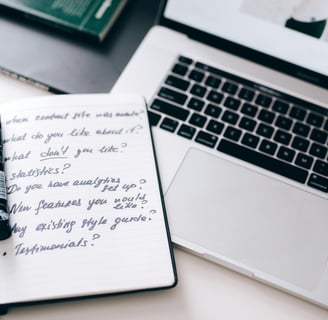 When current site was made?
What do you like about it?
What don't you like?
Statistics?
Do you have analytics
set up?
New features you would
like?
Any existing style guide?
• Testimonials?